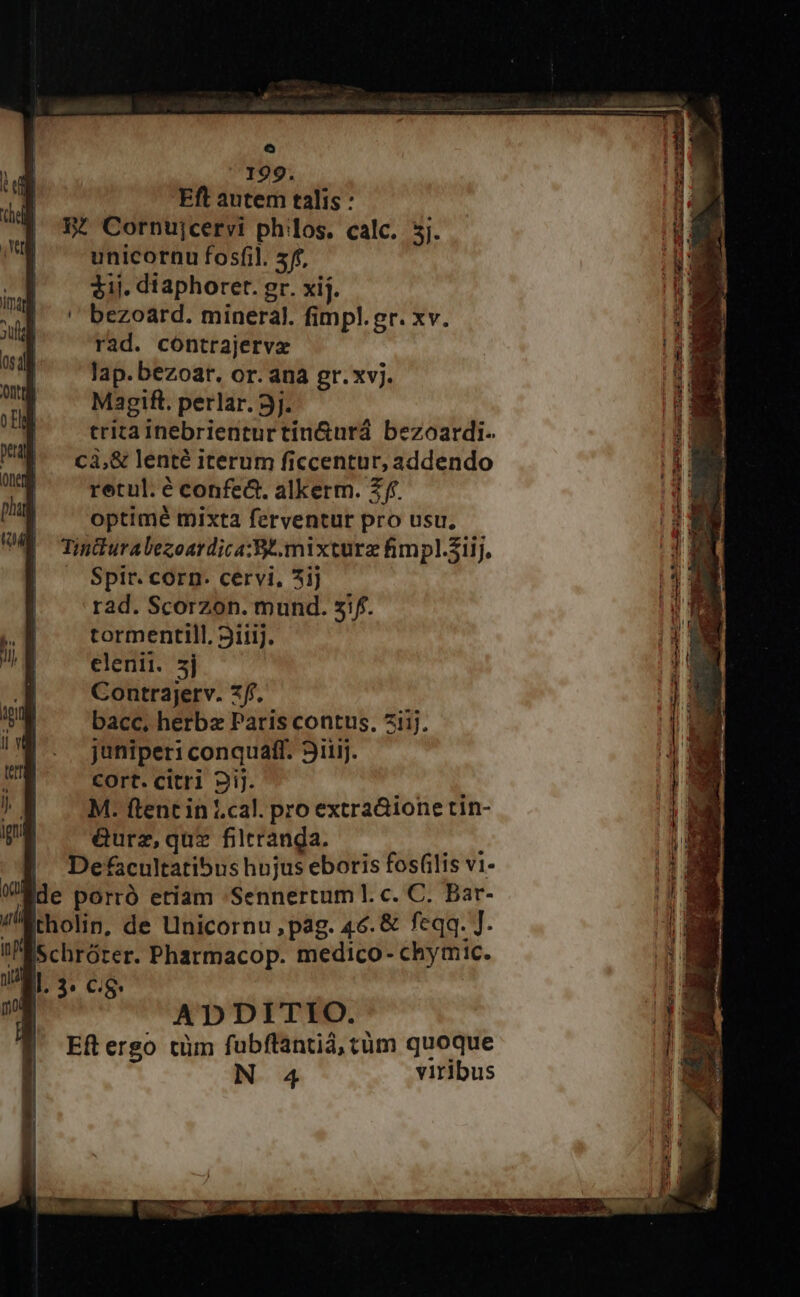 199.
Eſt autem talis :
℞ Cornu cervi philos. calc. ʒj.
unicornu fosſil. ʒß.
♁ij. diaphoret. gr. xij.
bezoard. mineral. ſimpl. gr. xv.
rad. contrajervæ
lap. bezoar. or. anà gr. xvj.
Magiſt. perlar. ℈j.
trita inebrientur tinctnrâ bezoardi-
câ, & lentè iterum ſiccentur, addendo
retul. è confect. alkerm. ℥ß.
optimè mixta ſerventur pro usu.
Tinctura bezoardica: ℞. mixturæ ſimpl. ℥iij.
Spir. corn. cervi. ℥ij
rad. Scorzon. mund. ʒiß.
tormentill. ℈iiij.
elenii. ʒj
Contrajerv. ℥ß.
bacc, herbæ Paris contus. ʒiij.
juniperi conquaſſ. ℈iiij.
cort. citri ℈ij.
M. ſtent in l. cal. pro extractione tin-
cturæ, quæ filtranda.
De facultatibus hujus eboris fosſilis vi-
de porrò etiam Sennertum l. c. C. Bar-
tholin, de Unicornu, pag. 46. & ſeqq. J.
Schröter. Pharmacop. medico-chymic.
l. 3. c. 8.
ADDITIO.
Eſt ergo tùm ſubſtantiâ, tùm quoque
N 4 viribus